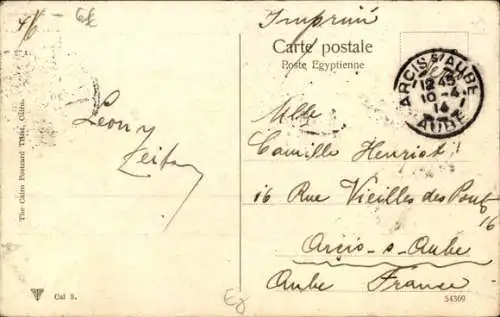 Imprimé
Carte postale
Poste Egyptienne
ARCIS S/AUBE
12 45
10-4
14
AUBE
Mlle
Camille Henriot
16 Rue Vieilles des Ponts
16
Arcis-s-Aube
Aube France
Leony
The Cairo Postcard Trust, Cairo.
Cal 8.
54369